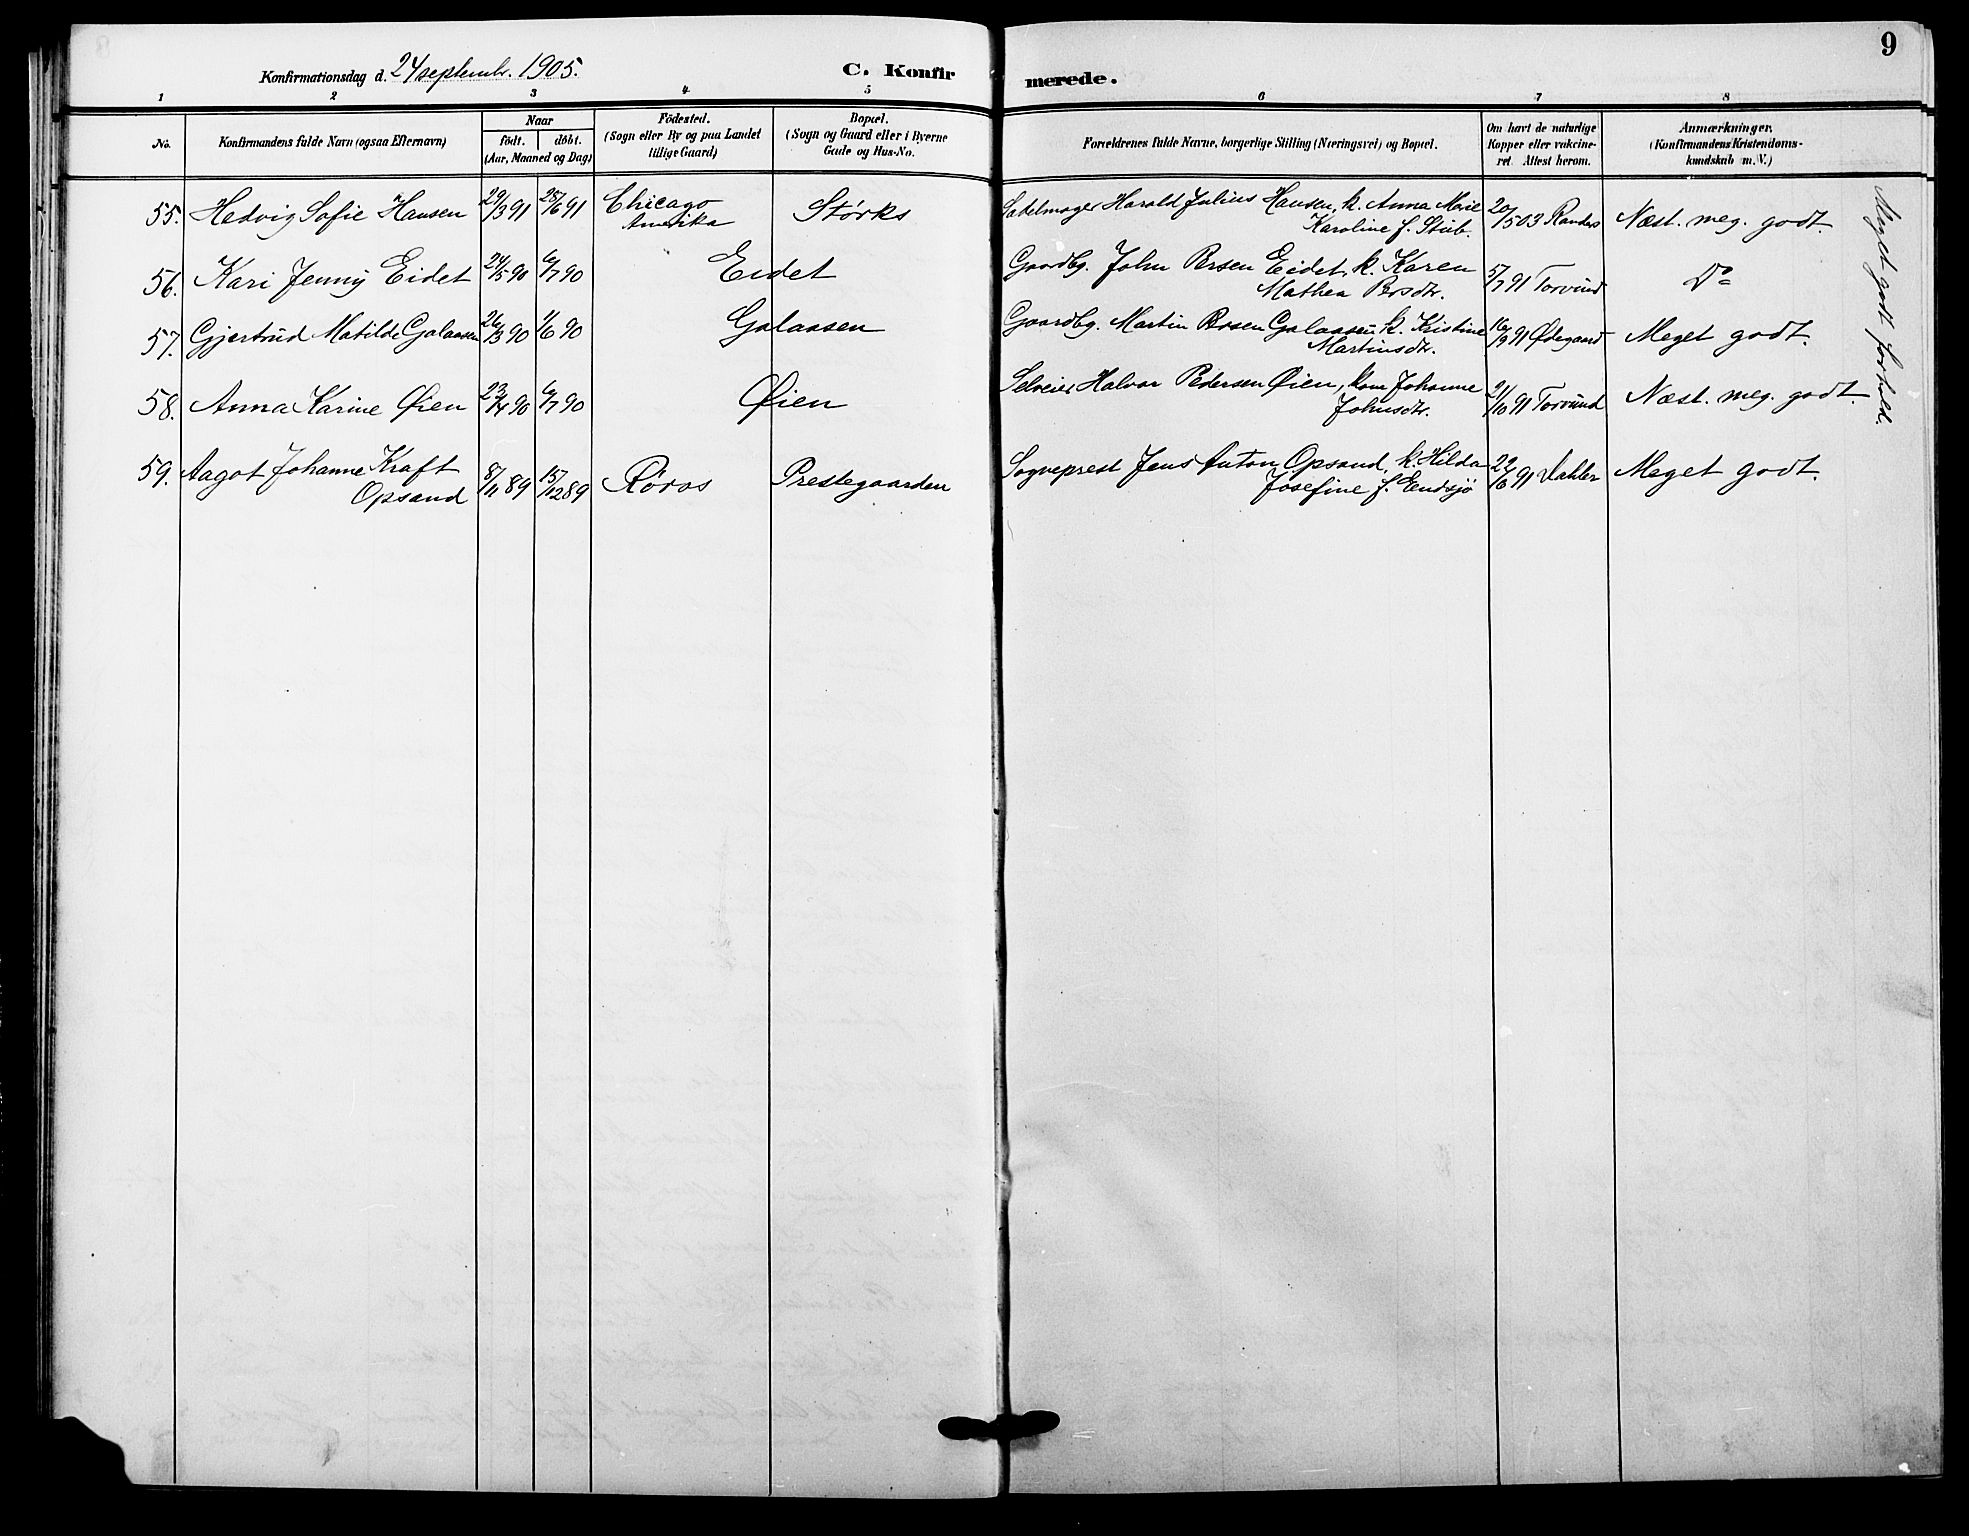 Konfirmationsdag d. 24 septembr. 1905.
C. Konfirmerede.
9
1 2 3 4 5 6 7 8
No.
Konfirmandens fulde Navn (ogsaa Efternavn)
Naar
födt. döbt.
(Aar, Maaned og Dag)
Födested.
(Sogn eller By og paa Landet
tillige Gaard)
Bopæl.
(Sogn og Gaard eller i Byerne
Gade og Hus-No.
Forældrenes fulde Navne, borgerlige Stilling (Næringsvei) og Bopæl.
Om havt de naturlige
Kopper eller vakcine-
ret. Attest herom.
Anmærkninger.
(Konfirmandens Kristendoms-
kundskab m. V.)
55. Hedvig Sofie Hansen 29/3 91 25/6 91 Chicago Størks Sadelmager Harald Julius Hansen, k. Anna Marie 20/5 03 Randers Næst. meg. godt.
Amerika Karoline f. Stub.
56. Kari Jenny Eidet 24/5 90 6/7 90 Eidet Gaardbg. John Persen Eidet, k. Karen 5/7 91 Torvund Do
Mathea Persdtr.
57. Gjertrud Matilde Galaasen 26/3 90 1/6 90 Galaasen Gaardbg. Martin Persen Galaasen, k. Kristine 16/9 91 Ødegaard Meget godt.
Martinsdtr.
58. Anna Karine Øien 23/4 90 6/7 90 Øien Selveier Halvor Pedersen Øien, kone Johanne 21/10 91 Torvund Næst. meg. godt.
Johnsdtr.
59. Aagot Johanne Kraft 8/11 89 15/12 89 Røros Prestegaarden Sogneprest Jens Anton Opsand, k. Hilda 22/6 91 Dahler Meget godt.
Opsand Josefine f. Endsjø
Meget godt forhold.